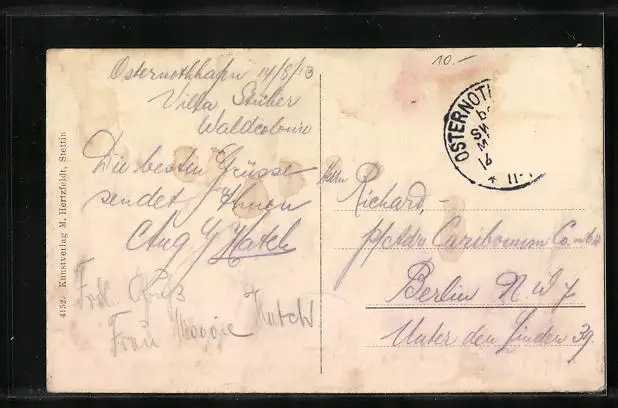 10.-
Osternothhafen 14/8/13
Villa Stüber
Waldcolonie
Die besten Grüsse
sendet Ihnen
Aug Hatch
Frdl. Gruß
Frau Maggie Hatch
4152. Kunstverlag M. Hertzfeldt, Stettin
OSTERNOTH
Herrn
Richard,-
Caribonum Co.
Berlin N W 7
Unter den Linden 39.